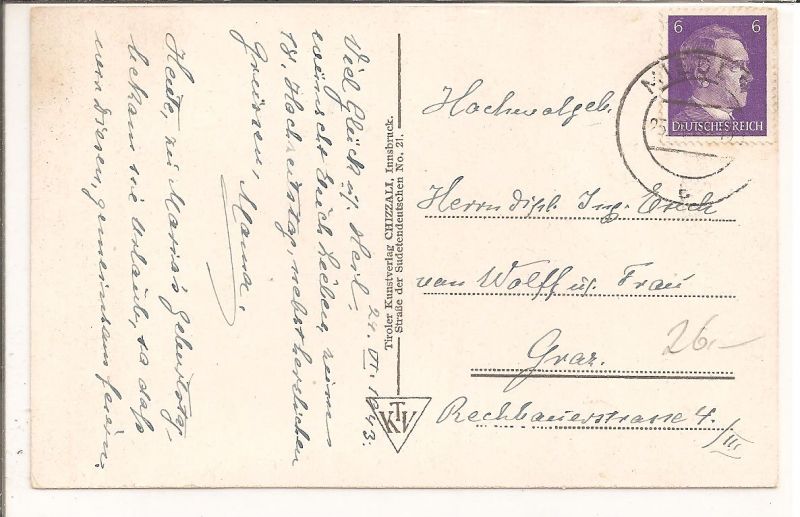 24. VI. 1943.
Viel Glück u. Heil,
wünscht Euch Lieben, zum
18. Hochzeitstag, nebst herzlichen
Grüssen, Mama.
Heute, zu Maria's Geburtstag,
bekam sie Urlaub, so dass
wir Diesen, gemeinsam feiern.
Tiroler Kunstverlag CHIZZALI, Innsbruck.
Straße der Sudetendeutschen No. 21.
KTV
6 6
DEUTSCHES REICH
Hochwolgeb.
Herrn Dipl. Ing. Erich
von Wolff u. Frau
Graz.
Rechbauerstrasse 4./III.
26.–